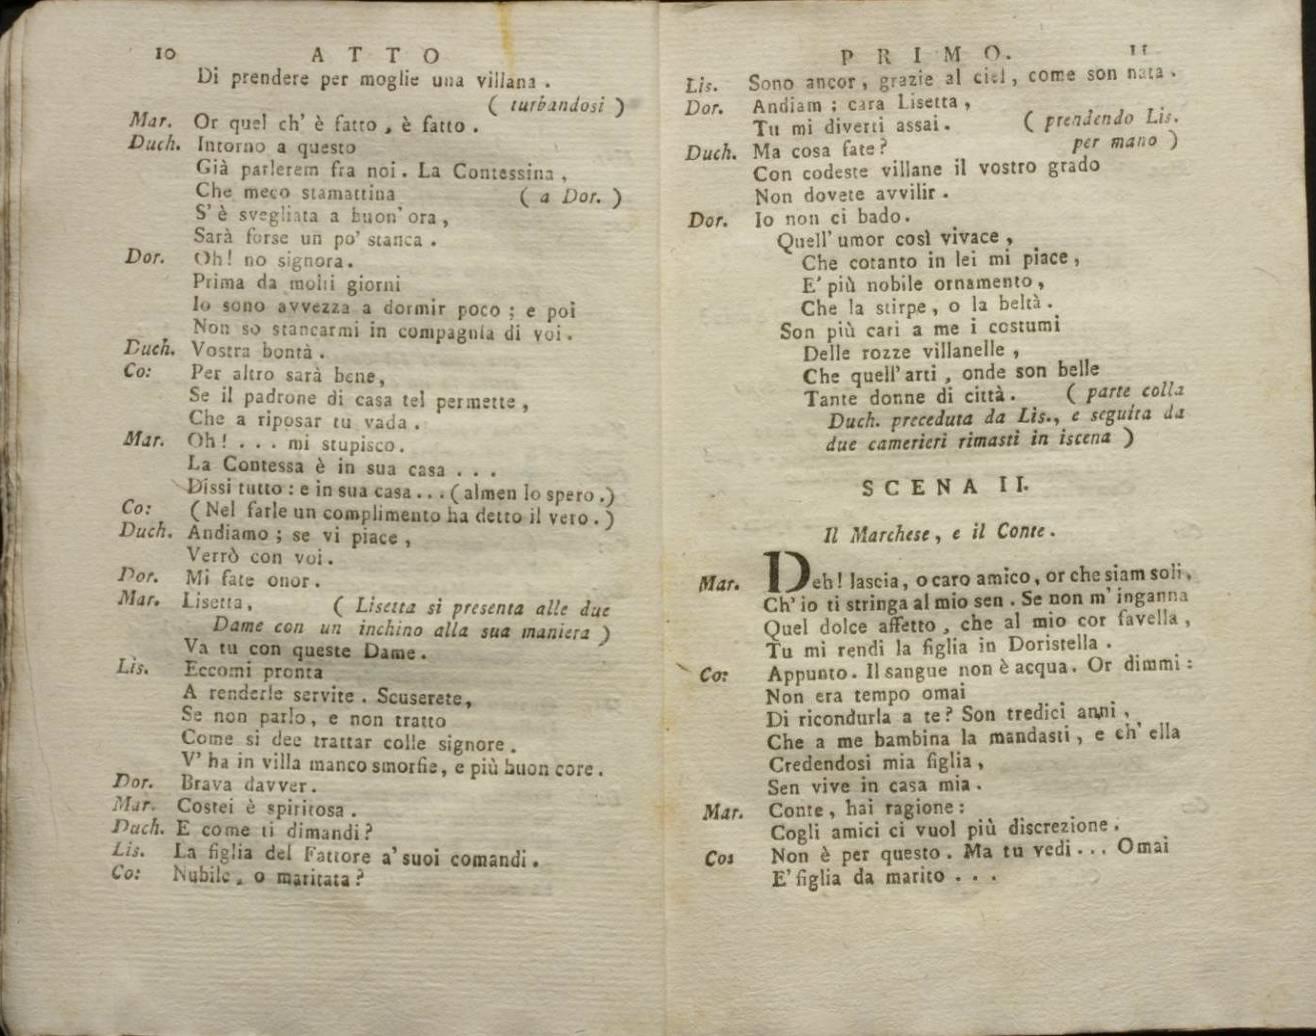 10 ATTO
Di prendere per moglie una villana .
( turbandosi )
Mar. Or quel ch' è fatto , è fatto .
Duch. Intorno a questo
Già parlerem fra noi . La Contessina ,
Che meco stamattina ( a Dor. )
S' è svegliata a buon' ora ,
Sarà forse un po' stanca .
Dor. Oh! no signora .
Prima da molti giorni
Io sono avvezza a dormir poco ; e poi
Non so stancarmi in compagnia di voi .
Duch. Vostra bontà .
Co: Per altro sarà bene ,
Se il padrone di casa tel permette ,
Che a riposar tu vada .
Mar. Oh! . . . mi stupisco .
La Contessa è in sua casa . . .
Dissi tutto : e in sua casa . . . ( almen lo spero . )
Co: ( Nel farle un complimento ha detto il vero . )
Duch. Andiamo ; se vi piace ,
Verrò con voi .
Dor. Mi fate onor .
Mar. Lisetta , ( Lisetta si presenta alle due
Dame con un inchino alla sua maniera )
Va tu con queste Dame .
Lis. Eccomi pronta
A renderle servite . Scuserete ,
Se non parlo , e non tratto
Come si dee trattar colle signore .
V' ha in villa manco smorfie , e più buon core .
Dor. Brava davver .
Mar. Costei è spiritosa .
Duch. E come ti dimandi ?
Lis. La figlia del Fattore a' suoi comandi .
Co: Nubile , o maritata ?
PRIMO. 11
Lis. Sono ancor , grazie al ciel , come son nata .
Dor. Andiam ; cara Lisetta ,
Tu mi diverti assai . ( prendendo Lis.
per mano )
Duch. Ma cosa fate ?
Con codeste villane il vostro grado
Non dovete avvilir .
Dor. Io non ci bado .
Quell' umor così vivace ,
Che cotanto in lei mi piace ,
E' più nobile ornamento ,
Che la stirpe , o la beltà .
Son più cari a me i costumi
Delle rozze villanelle ,
Che quell' arti , onde son belle
Tante donne di città . ( parte colla
Duch. preceduta da Lis., e seguita da
due camerieri rimasti in iscena )
SCENA II.
Il Marchese , e il Conte .
Mar. Deh! lascia , o caro amico , or che siam soli ,
Ch' io ti stringa al mio sen . Se non m' inganna
Quel dolce affetto , che al mio cor favella ,
Tu mi rendi la figlia in Doristella .
Co: Appunto . Il sangue non è acqua . Or dimmi :
Non era tempo omai
Di ricondurla a te ? Son tredici anni ,
Che a me bambina la mandasti , e ch' ella
Credendosi mia figlia ,
Sen vive in casa mia .
Mar. Conte , hai ragione :
Cogli amici ci vuol più discrezione .
Co: Non è per questo . Ma tu vedi . . . Omai
E' figlia da marito . . .